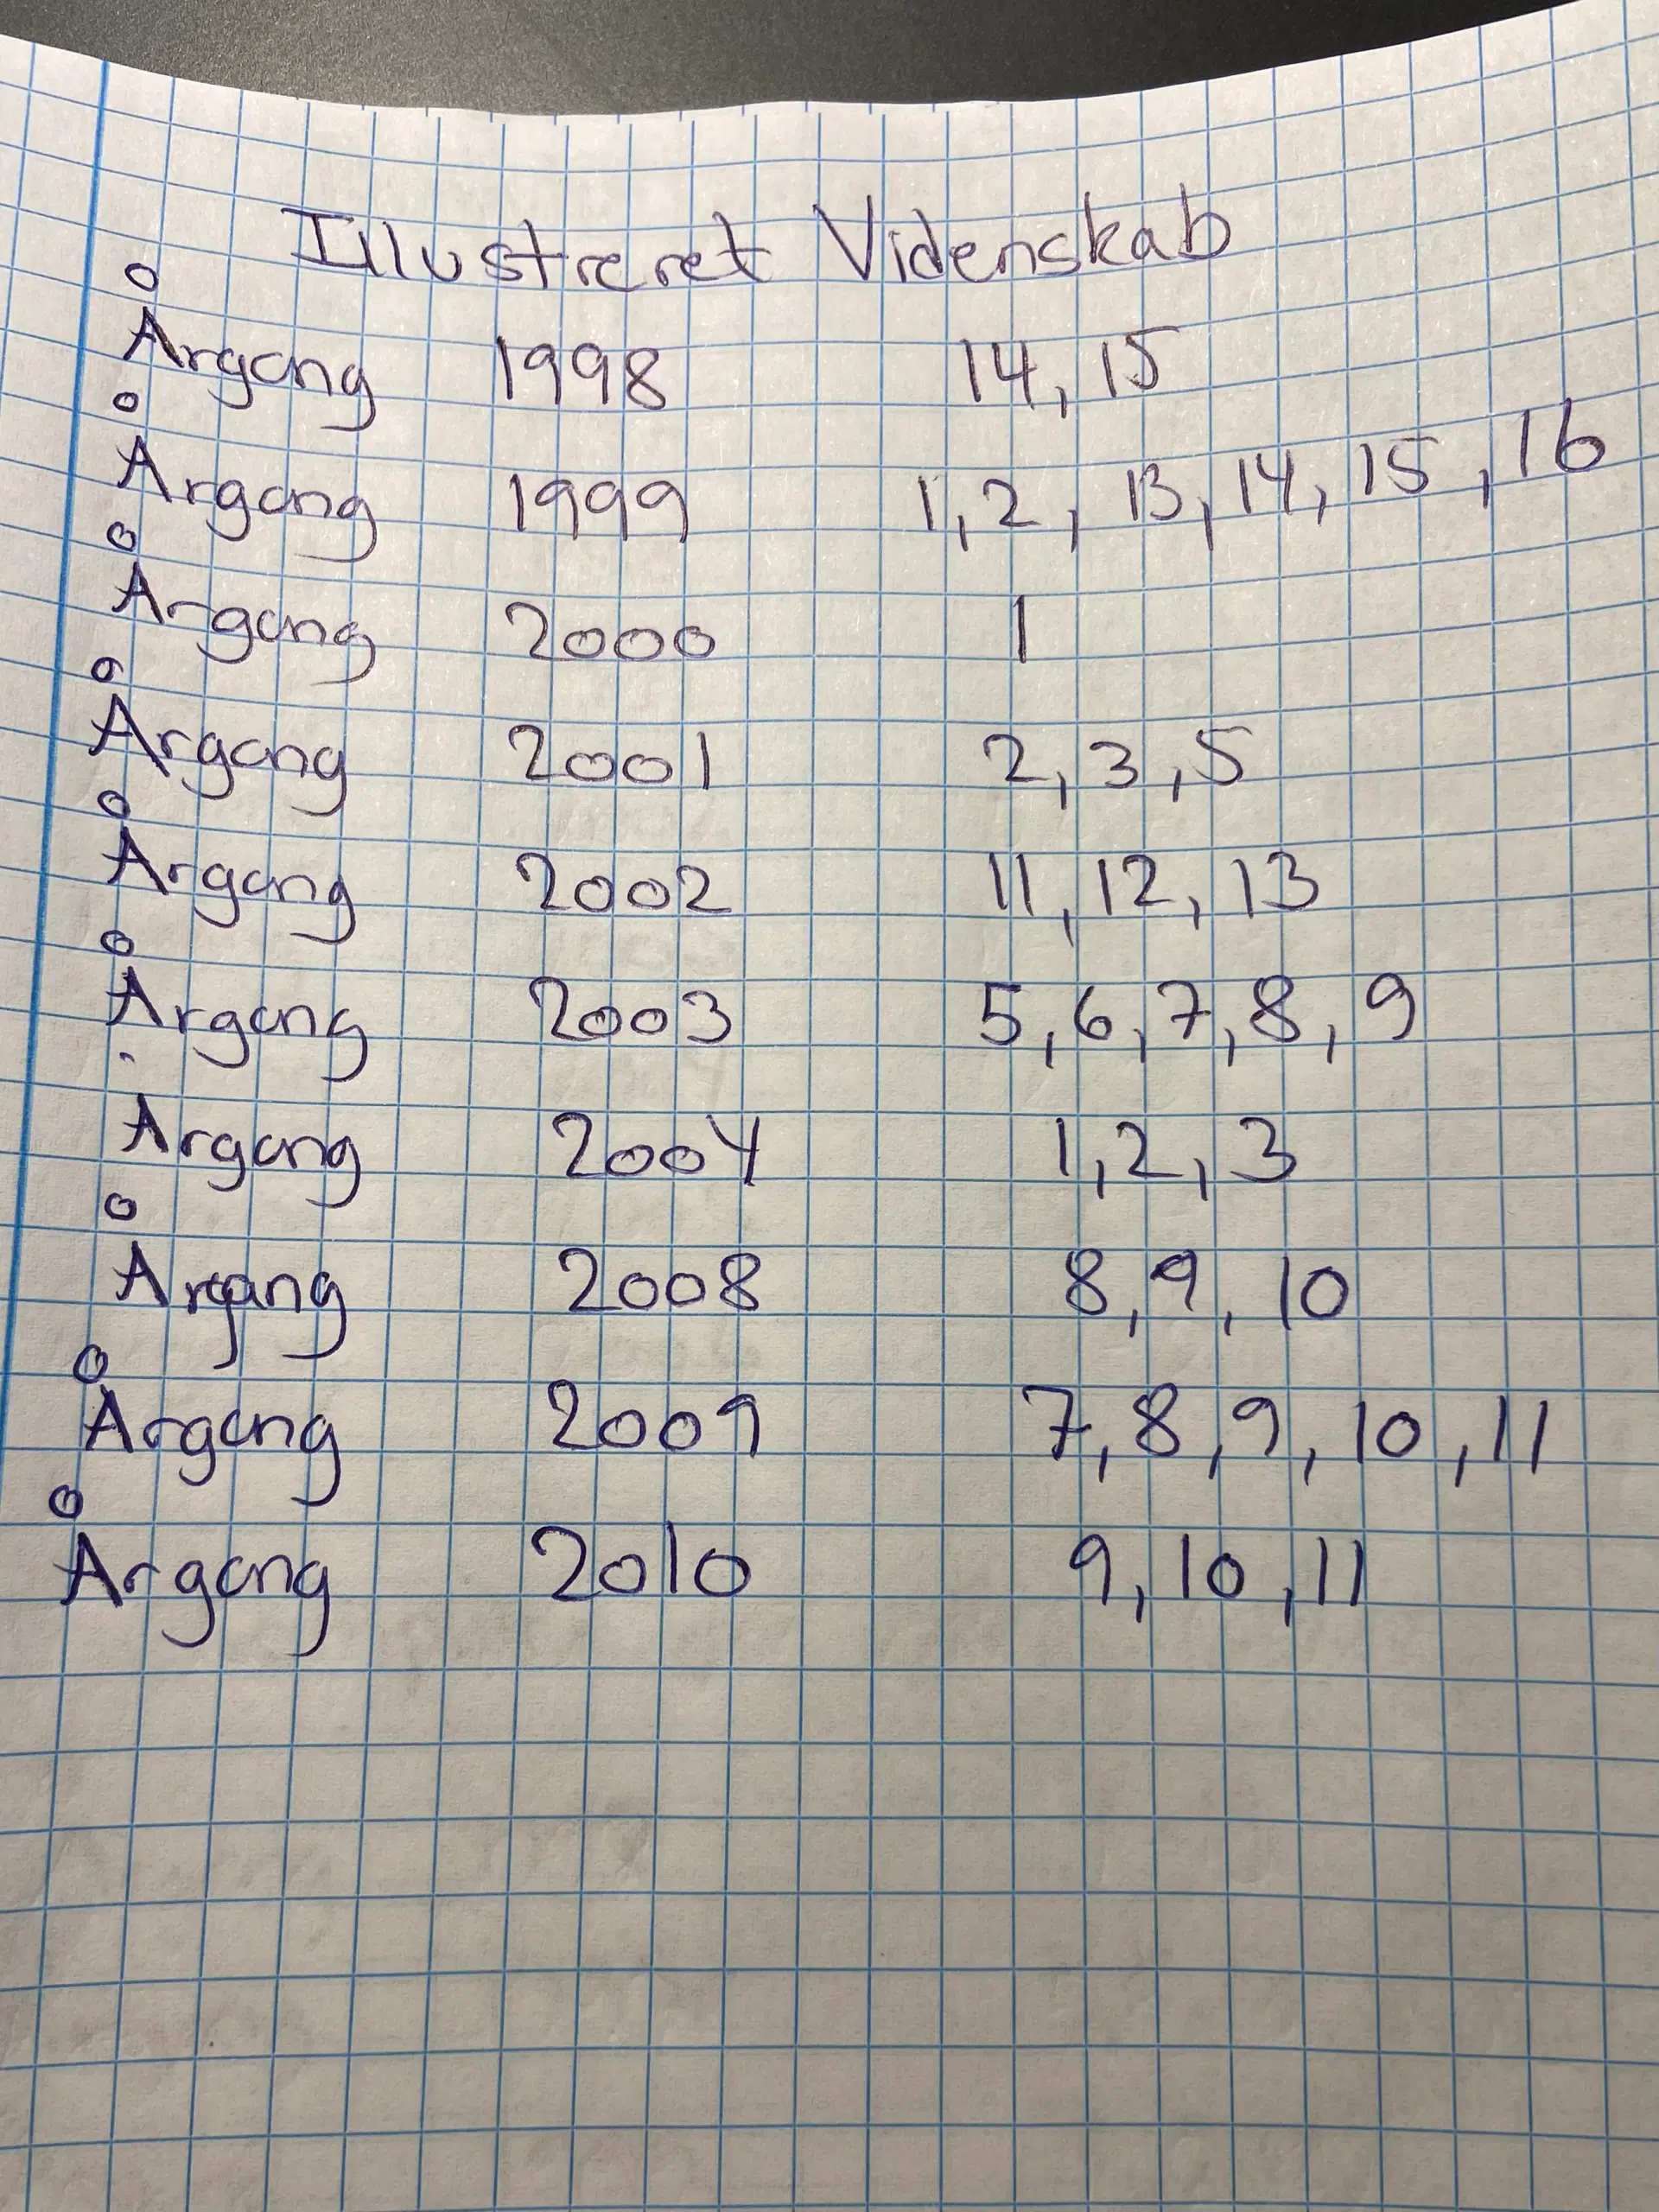 Illustreret Videnskab
Årgang 1998 14, 15
Årgang 1999 1, 2, 13, 14, 15, 16
Årgang 2000 1
Årgang 2001 2, 3, 5
Årgang 2002 11, 12, 13
Årgang 2003 5, 6, 7, 8, 9
Årgang 2004 1, 2, 3
Årgang 2008 8, 9, 10
Årgang 2009 7, 8, 9, 10, 11
Årgang 2010 9, 10, 11